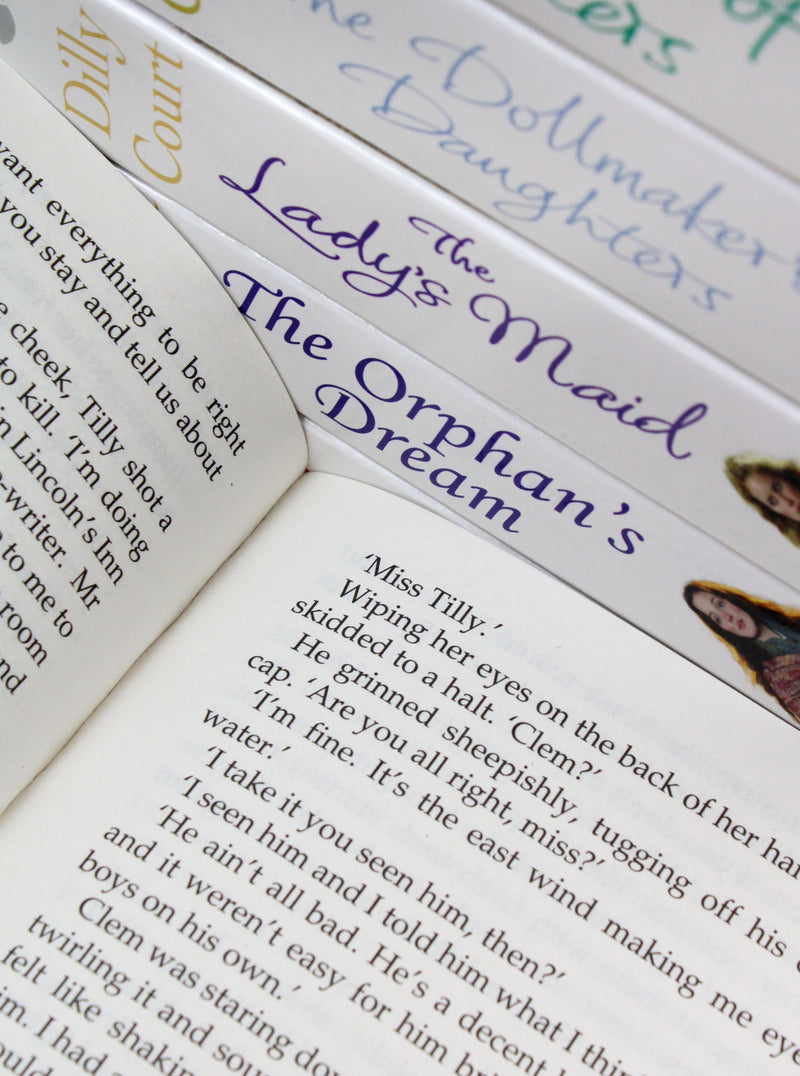 of
ters
The Dollmaker's
Daughters
Dilly
Court
The
Lady's Maid
The Orphan's
Dream
want everything to be right
you stay and tell us about
cheek, Tilly shot a
to kill. 'I'm doing
in Lincoln's Inn
-writer. Mr
to me to
room
'Miss Tilly.'
Wiping her eyes on the back of her
skidded to a halt. 'Clem?'
He grinned sheepishly, tugging off his
cap. 'Are you all right, miss?'
'I'm fine. It's the east wind making me
water.'
'I take it you seen him, then?'
'I seen him and I told him what I
'He ain't all bad. He's a decent
and it weren't easy for him
boys on his own.'
Clem was staring
twirling it and
felt like
I had